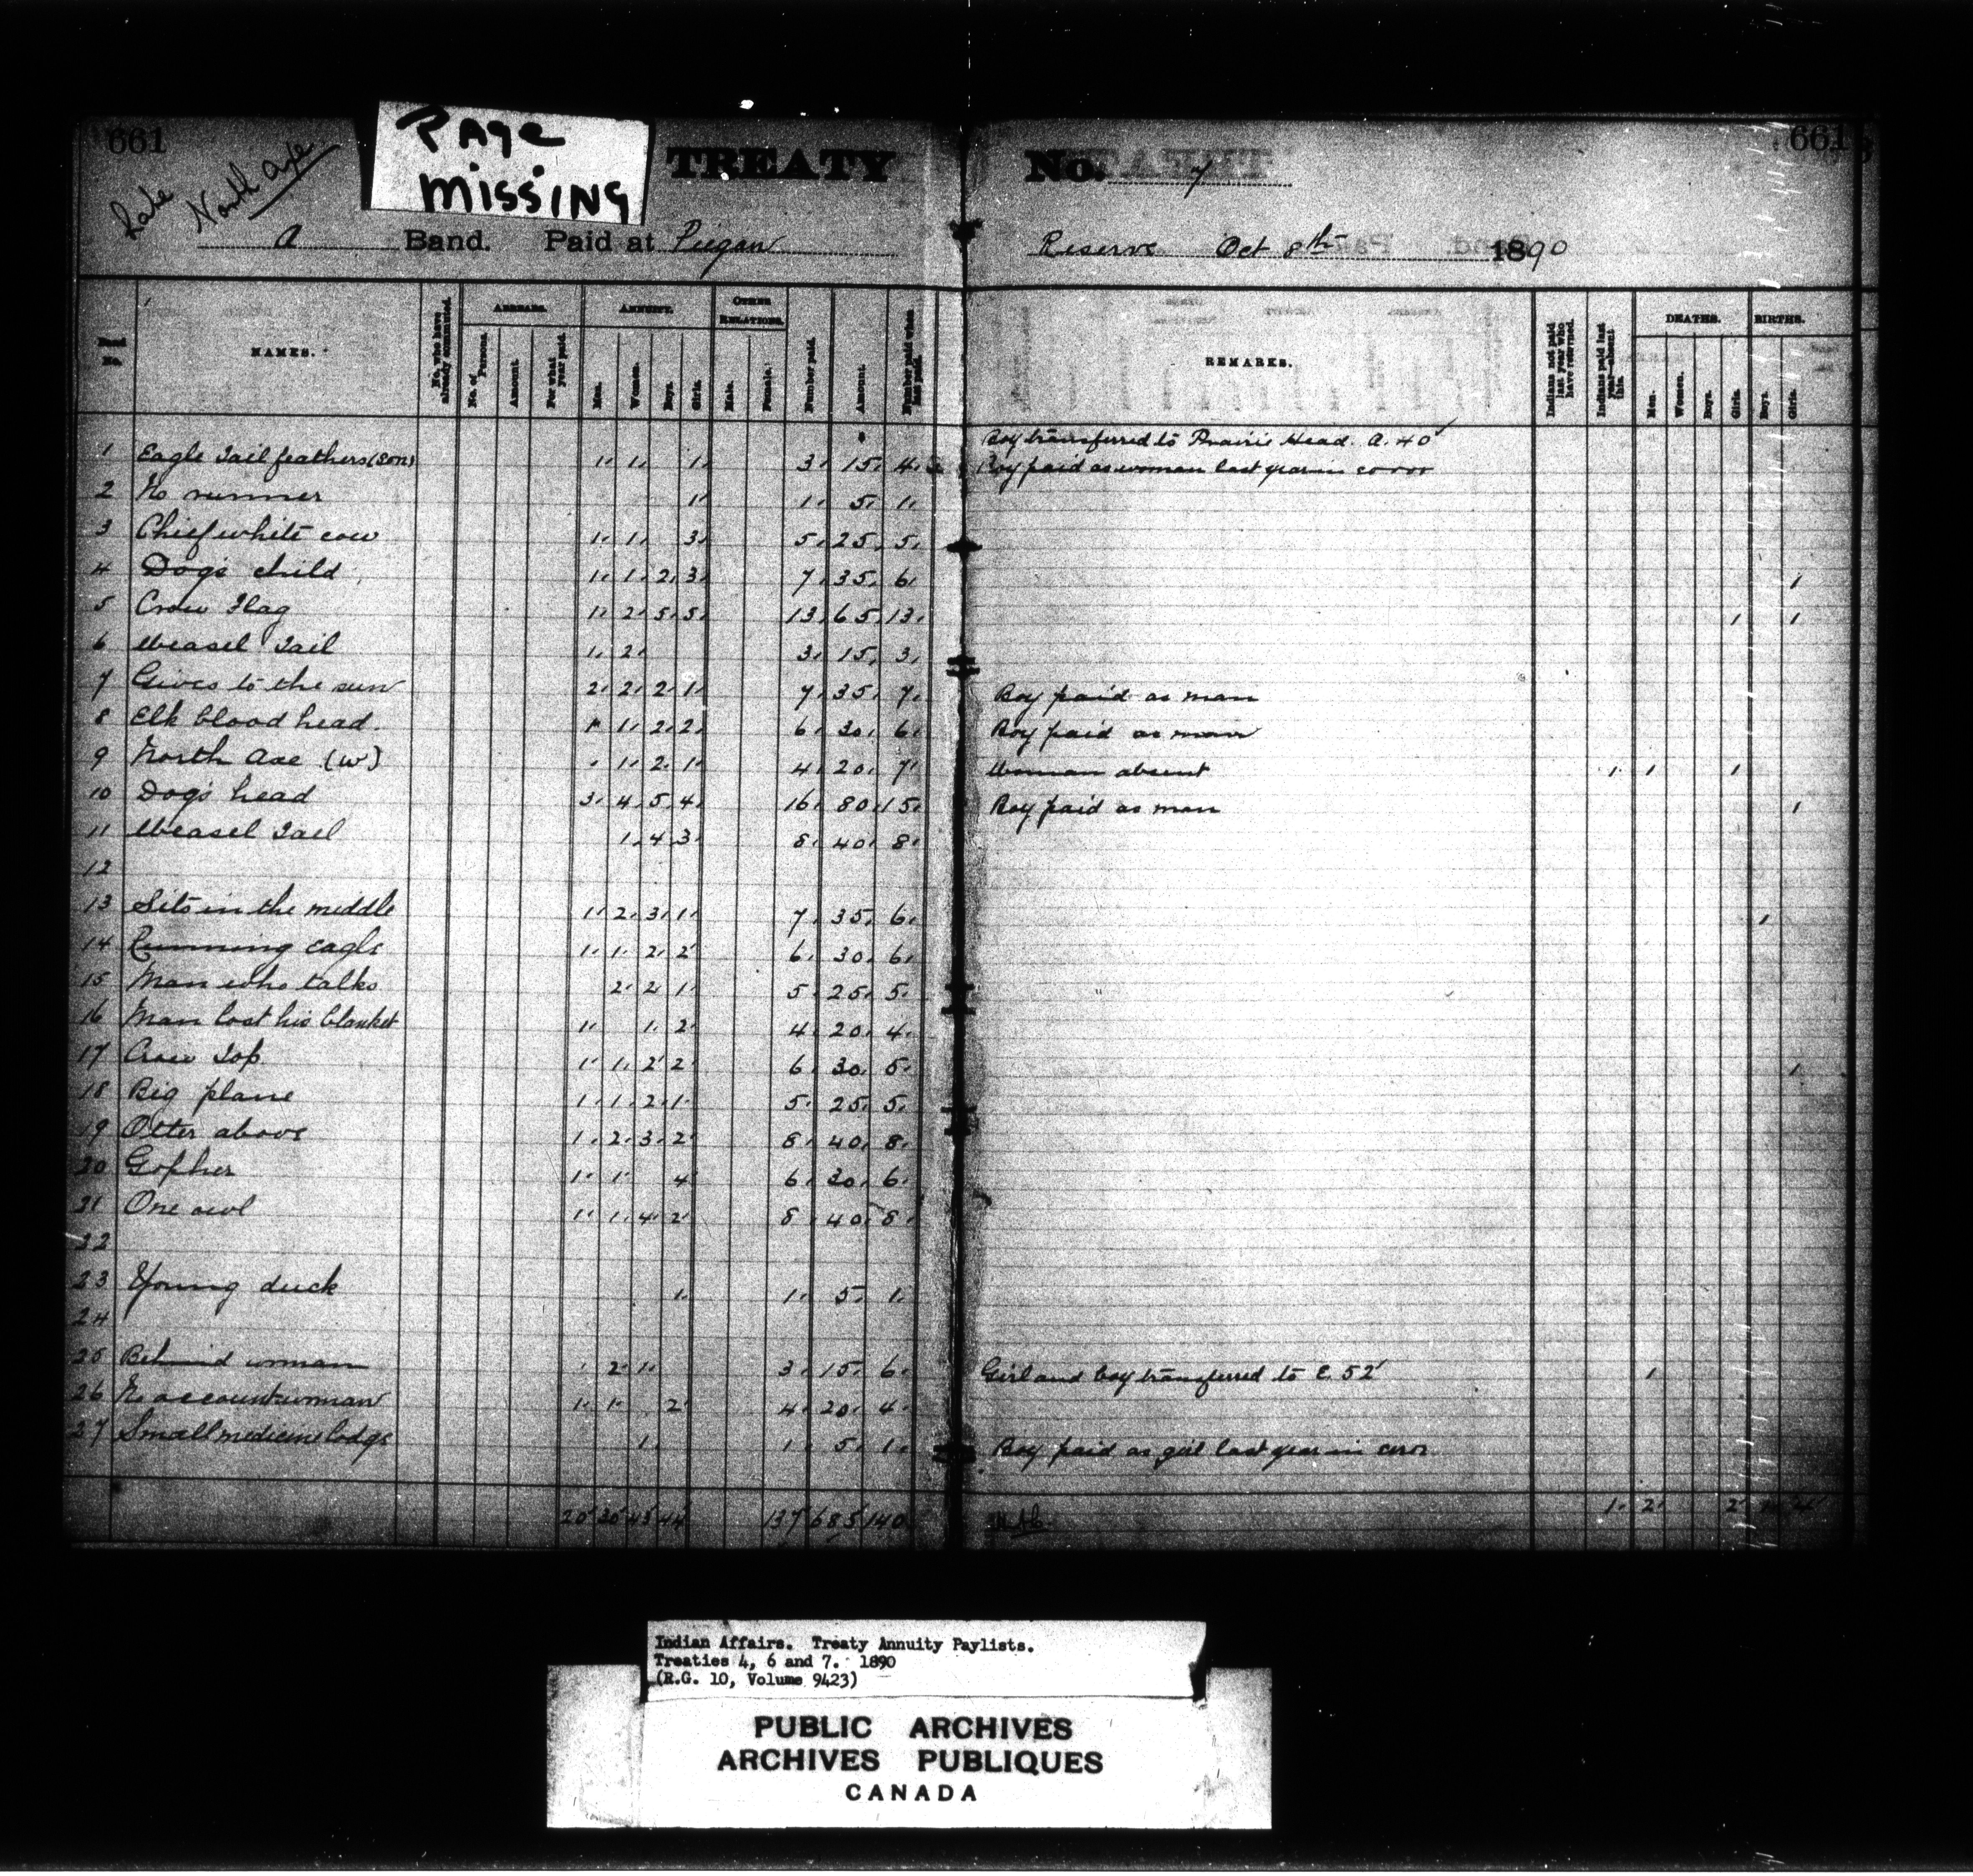 661
PAGE MISSING
TREATY No. 7
661
Late North Axe
A Band. Paid at Piegan Reserve Oct 8th 1890
No. NAMES. No. who have already commuted. ARREARS. No. of Persons. Amount. For what year paid. ANNUITY. Men. Women. Boys. Girls. OTHER RELATIONS. Male. Female. Number paid. Amount. Number paid when last paid. REMARKS. Indians not paid last year who have returned. Indians paid last year absent this. DEATHS. Men. Women. Boys. Girls. BIRTHS. Boys. Girls.
Boy transferred to Prairie Head. A. 40
1 Eagle Tail feathers (son) 1 1 1 3 15 4 Boy paid as woman last year in error
2 No runner 1 1 5 1
3 Chief white cow 1 1 3 5 25 5
4 Dogs child 1 1 2 3 7 35 6 1
5 Crow Flag 1 2 5 5 13 65 13 1 1
6 Weasel Tail 1 2 3 15 3
7 Gives to the sun 2 2 2 1 7 35 7 Boy paid as man
8 Elk blood head. 1 1 2 2 6 30 6 Boy paid as man
9 North Axe (W) 1 2 1 4 20 7 Woman absent 1 1 1
10 Dogs head 3 4 5 4 16 80 15 Boy paid as man 1
11 Weasel Tail 1 4 3 8 40 8
12
13 Sits in the middle 1 2 3 1 7 35 6 1
14 Running eagle 1 1 2 2 6 30 6
15 Man who talks 2 2 1 5 25 5
16 Man lost his blanket 1 1 2 4 20 4
17 Crow Top 1 1 2 2 6 30 5 1
18 Big plane 1 1 2 1 5 25 5
19 Otter above 1 2 3 2 8 40 8
20 Gopher 1 1 4 6 30 6
21 One owl 1 1 4 2 8 40 8
22
23 Young duck 1 1 5 1
24
25 Behind woman 2 1 3 15 6 Girl and boy transferred to E. 52 1
26 No account woman 1 1 2 4 20 4
27 Small medicine lodge 1 1 5 1 Boy paid as girl last year in error
20 30 43 44 137 685 140 1 2 2 1 4
Indian Affairs. Treaty Annuity Paylists.
Treaties 4, 6 and 7. 1890
(R.G. 10, Volume 9423)
PUBLIC ARCHIVES
ARCHIVES PUBLIQUES
CANADA